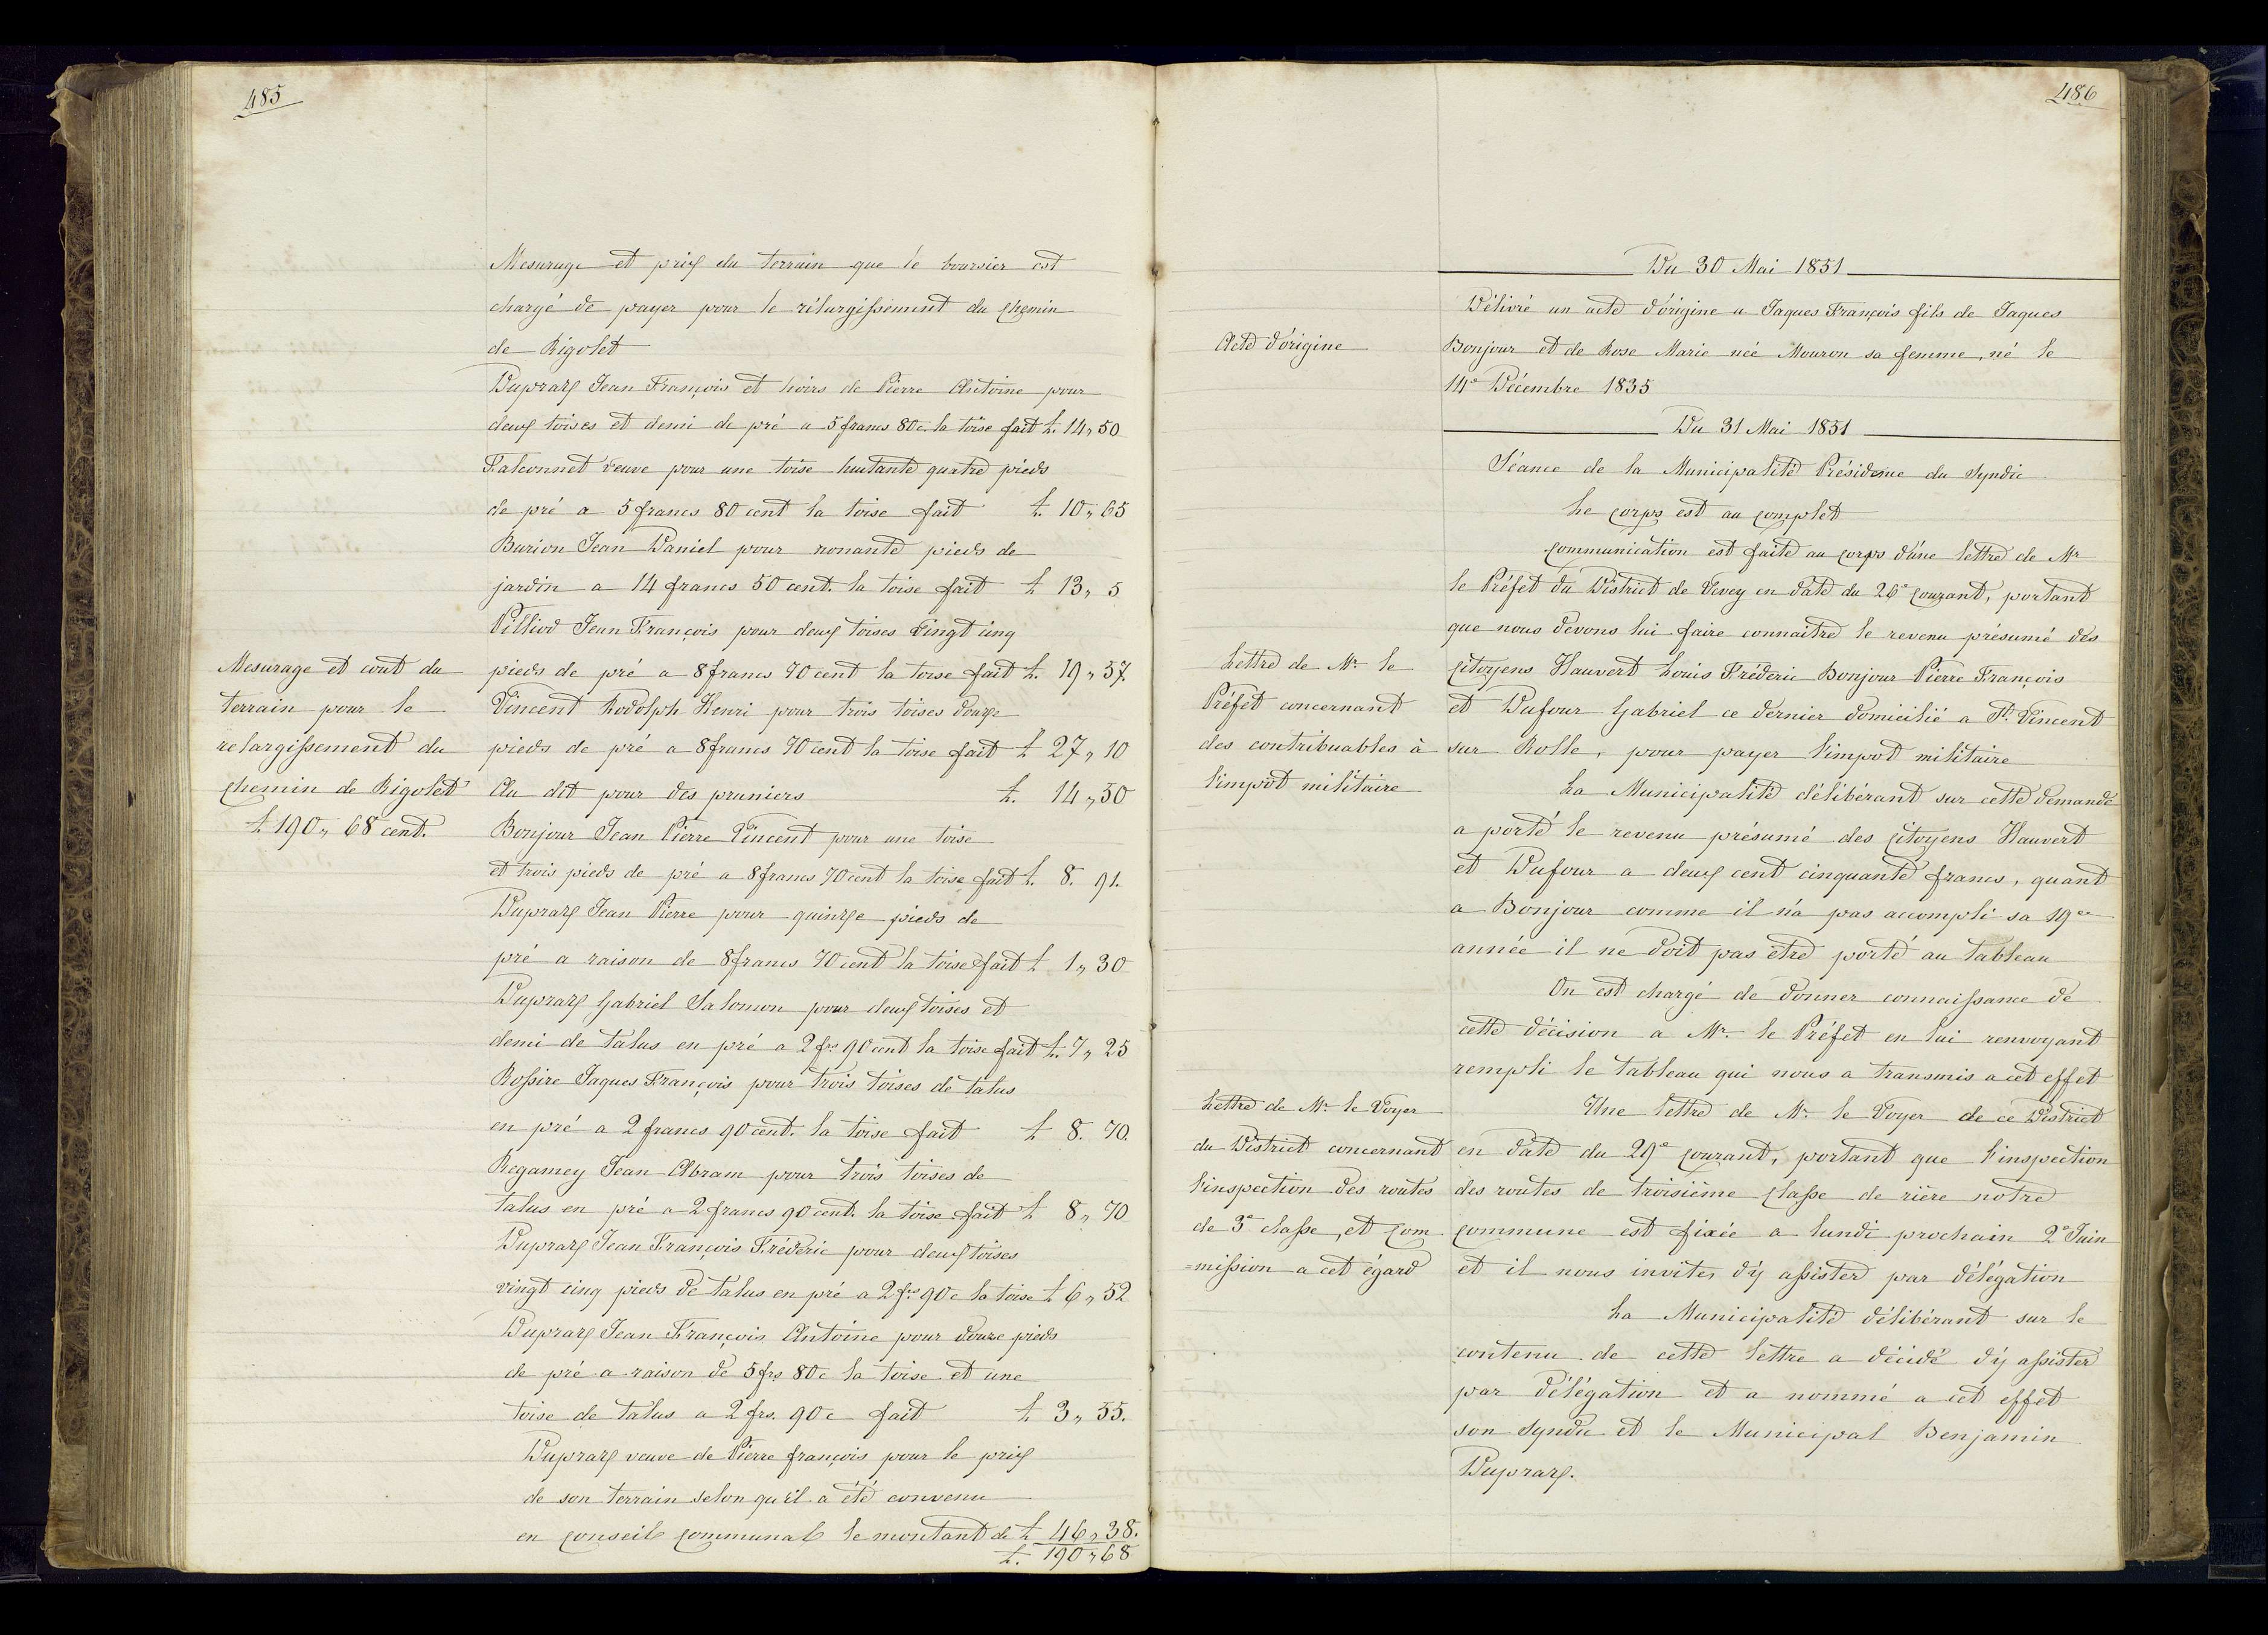 485
Mesurage et prix du terrain que le boursier est
chargé de payer pour le rélargissement du chemin
de Rigolet
Dupraz Jean François et hoirs de Pierre Antoine pour
deux toises et demi de pré a 5 francs 80 c. la toise fait £. 14,, 50
Falconnet veuve pour une toise huitante quatre pieds
de pré a 5 francs 80 cent la toise fait £. 10,, 65
Burion Jean Daniel pour nonante pieds de
jardin a 14 francs 50 cent. la toise fait £ 13,, 5
Pilliod Jean François pour deux toises vingt cinq
Mesurage et cout du
terrain pour le
relargissement du
chemin de Rigolet
£ 190,, 68 cent.
pieds de pré a 8 francs 70 cent la toise fait £. 19,, 57
Vincent Rodolph Henri pour trois toises douze
pieds de pré a 8 francs 70 cent la toise fait £ 27,, 10
Au dit pour des pruniers £. 14,, 30
Bonjour Jean Pierre Vincent pour une toise
et trois pieds de pré a 8 francs 70 cent la toise fait £. 8. 91.
Dupraz Jean Pierre pour quinze pieds de
pré a raison de 8 francs 70 cent la toise fait £ 1,, 30
Dupraz Gabriel Salomon pour deux toises et
demi de talus en pré a 2 frs 90 cent la toise fait £. 7,, 25
Rossire Jaques François pour trois toises de talus
en pré a 2 francs 90 cent. la toise fait £ 8. 70.
Regamey Jean Abram pour trois toises de
talus en pré a 2 francs 90 cent. la toise fait £ 8,, 70
Dupraz Jean François Fréderic pour deux toises
vingt cinq pieds de talus en pré a 2 frs 90 c la toise £ 6,, 52
Dupraz Jean François Antoine pour douze pieds
de pré a raison de 5 frs 80 c la toise et une
toise de talus a 2 frs. 90 c fait £ 3,, 55.
Dupraz veuve de Pierre françois pour le prix
de son terrain selon qu'il a été convenu
en conseil communal le montant de £ 46,, 38.
£. 190,, 68
486
Du 30 Mai 1851
Acte d'origine
Délivré un acte d'origine a Jaques François fils de Jaques
Bonjour et de Rose Marie née Mouron sa femme, né le
14e Décembre 1835
Du 31 Mai 1851
Séance de la Municipalité Présidence du Syndic
Le corps est au complet
Communication est faite au corps d'une lettre de Mr
le Préfet du District de Vevey en date du 26e courant, portant
que nous devons lui faire connaitre le revenu présumé des
Lettre de Mr. le
Préfet concernant
des contribuables à
l'impôt militaire
citoyens Hauvert Louis Fréderic Bonjour Pierre François
et Dufour Gabriel ce dernier domicilié a St. Vincent
sur Rolle, pour payer l'impot militaire
La Municipalité délibérant sur cette demande
a porté le revenu présumé des citoyens Hauvert
et Dufour a deux cent cinquante francs, quant
a Bonjour comme il n'a pas accompli sa 19ee
année il ne doit pas être porté au tableau
On est chargé de donner connaissance de
cette décision a Mr. le Préfet en lui renvoyant
rempli le tableau qui nous a transmis a cet effet
Lettre de Mr. le Voyer
du District concernant
l'inspection des routes
de 3e classe, et com
=mission a cet égard
Une lettre de Mr. le Voyer de ce District
en date du 29e courant, portant que l'inspection
des routes de troisième classe de rière notre
commune est fixée a lundi prochain 2e Juin
et il nous invite, d'y assister par délégation
La Municipalité délibérant sur le
contenu de cette lettre a décidé d'y assister
par délégation et a nommé a cet effet
son Syndic et le Municipal Benjamin
Dupraz.